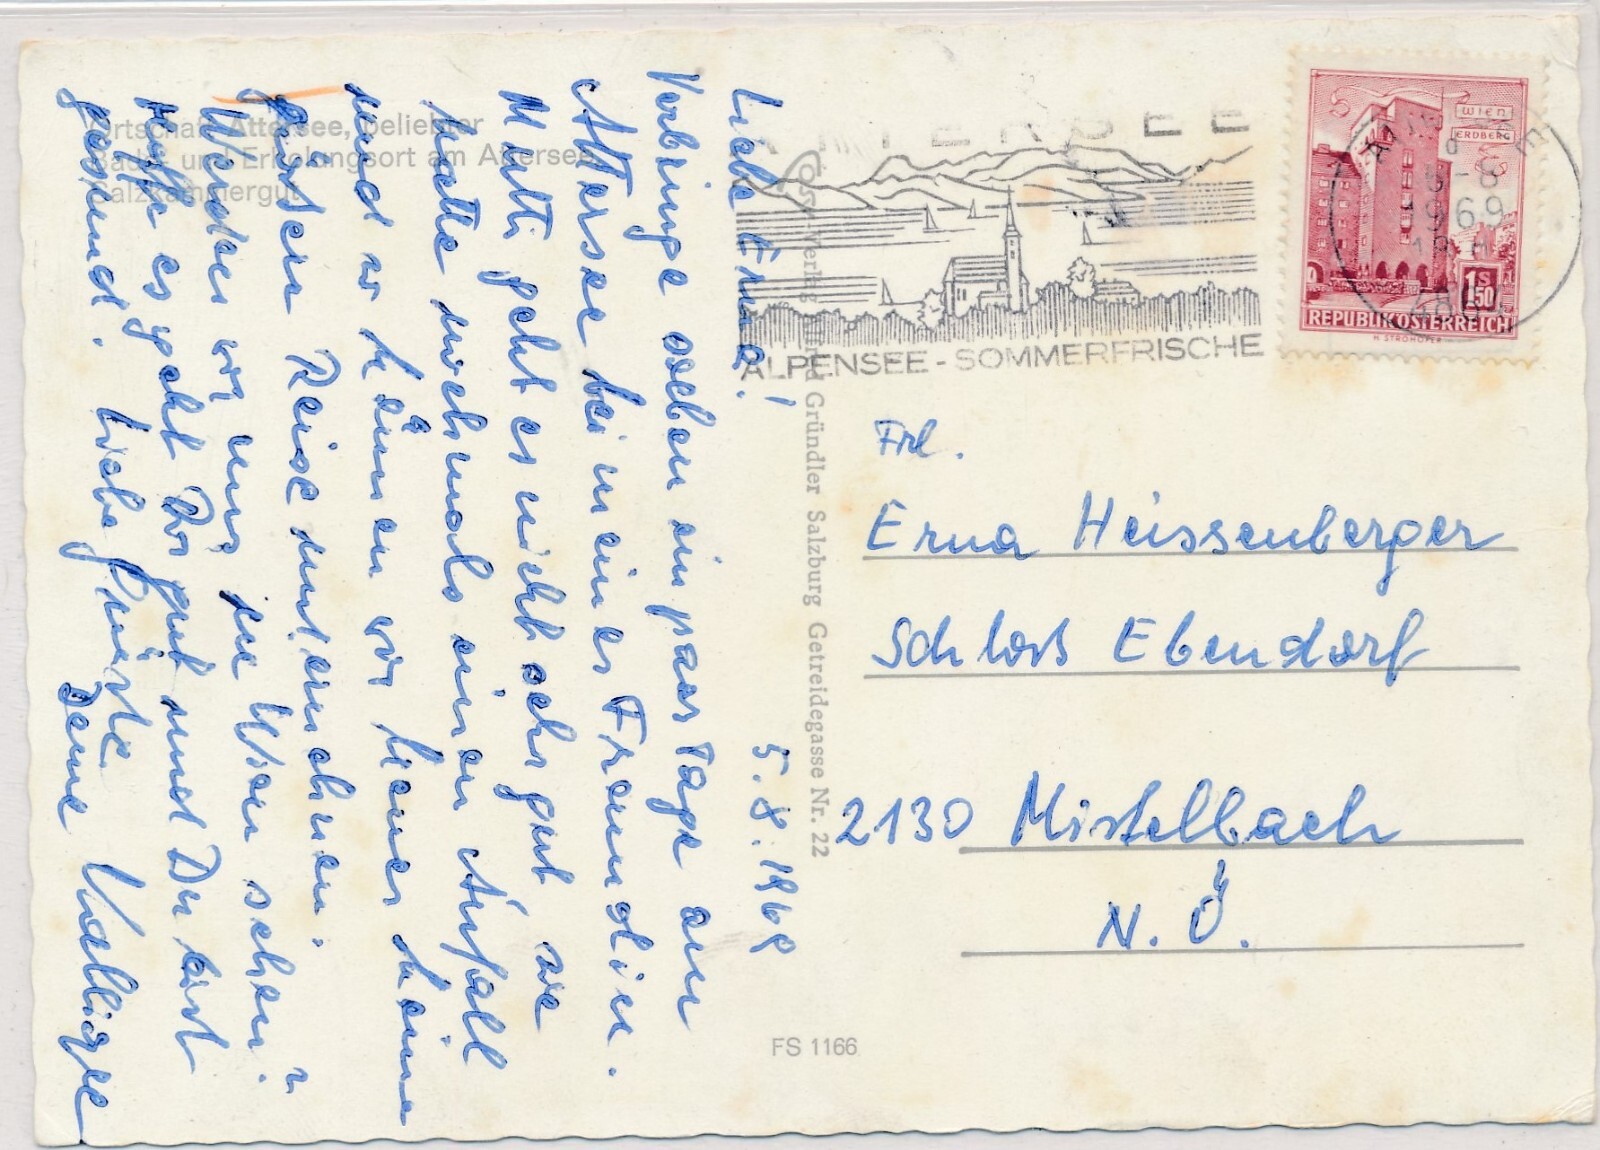 Ortschaft Attersee, beliebter
Bade- und Erholungsort am Attersee
Salzkammergut
5. 8. 1969
Liebe Erna!
Verbringe soeben ein paar Tage am
Attersee bei meiner Freundin.
Mutti geht es nicht sehr gut sie
hatte mehrmals einen Anfall
und so können wir heuer keine
Reise unternehmen.
Werden wir uns in Wien sehen?
Hoffe es geht Dir gut und Du bist
gesund. Liebe Grüsse
Deine
Cosy-Verlag Gründler Salzburg Getreidegasse Nr. 22
ATTERSEE
ALPENSEE-SOMMERFRISCHE
WIEN
ERDBERG
1S
50
REPUBLIK ÖSTERREICH
H. STROHOFER
1969
Frl.
Erna Heissenberger
Schloß Ebendorf
2130 Mistelbach
N.Ö.
FS 1166